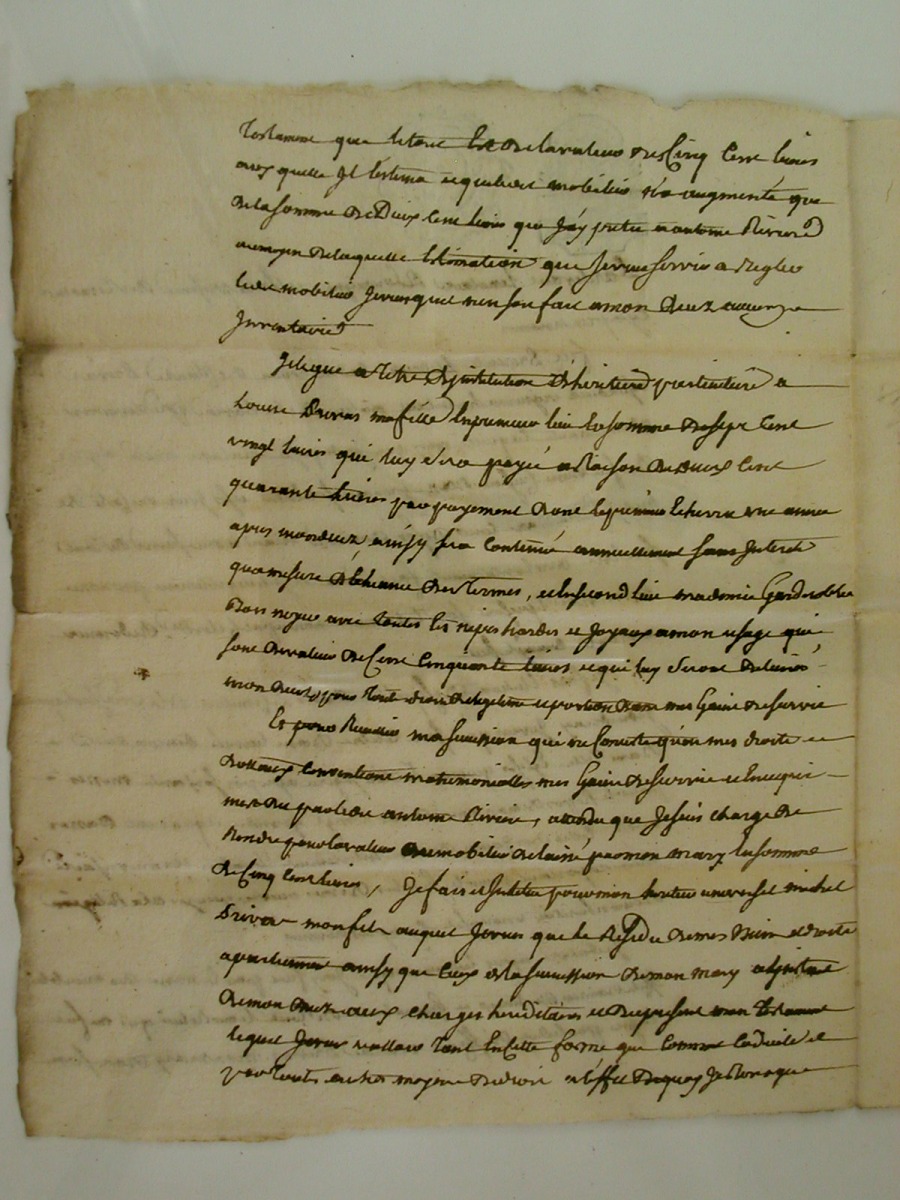 testament que le tout est de la valleur de Cinq Cent livres
aux quelle Je l'estime et que le mobilié n'a augmenté que
de la somme de Deux Cent livres que J'ay pretée a antoine Riviere
au moyen de laquelle Estimation que Je veux servir a Regler
le mobilié Je veux que rien soit fait a mon Decez aucun
Inventaire
Je legue a titre d'institution d'heritiere particuliere a
Louise Privas ma fille En premier lieu la somme de sept Cent
vingt livres qui luy sera payée a Raison de deux Cent
quarante livres par payement dont le premier Echerra une année
apres mon decez ainsy sera Continué annuellement sans Interet
qu'a mesure d'Echeance des termes, et en second lieu ma demie Garderobbe
Bois noyer avec toutes les nipes hardes et Joyaux a mon usage qui
sont de valleur de Cent Cinquante livres et qui luy seront delivrés
mon decez pour tout droit de legitime et portion dans mes Gains de survie
Et pour ma succession qui ne Consiste qu'en mes droits et
dottaux Conventions matrimonialles mes Gains de survie et en
du par ledit antoine Riviere, attendu que Je suis chargée de
Rendre pour la valleur du mobilié delaissé par mon mary la somme
de Cinq Cent livres, Je fais et Institue pour mon heritier universel michel
Privas mon fils auquel Je veux que le Residu de mes Biens et droits
apartienne ainsy que Ceux de la succession de mon mary a l'instant
de mon decez aux charges hereditaires et du present mon testament
lequel Je veux valloir tant En cette forme que Comme Codicile et
par touts autres moyens de droit a l'effet de quoy Je Revoque